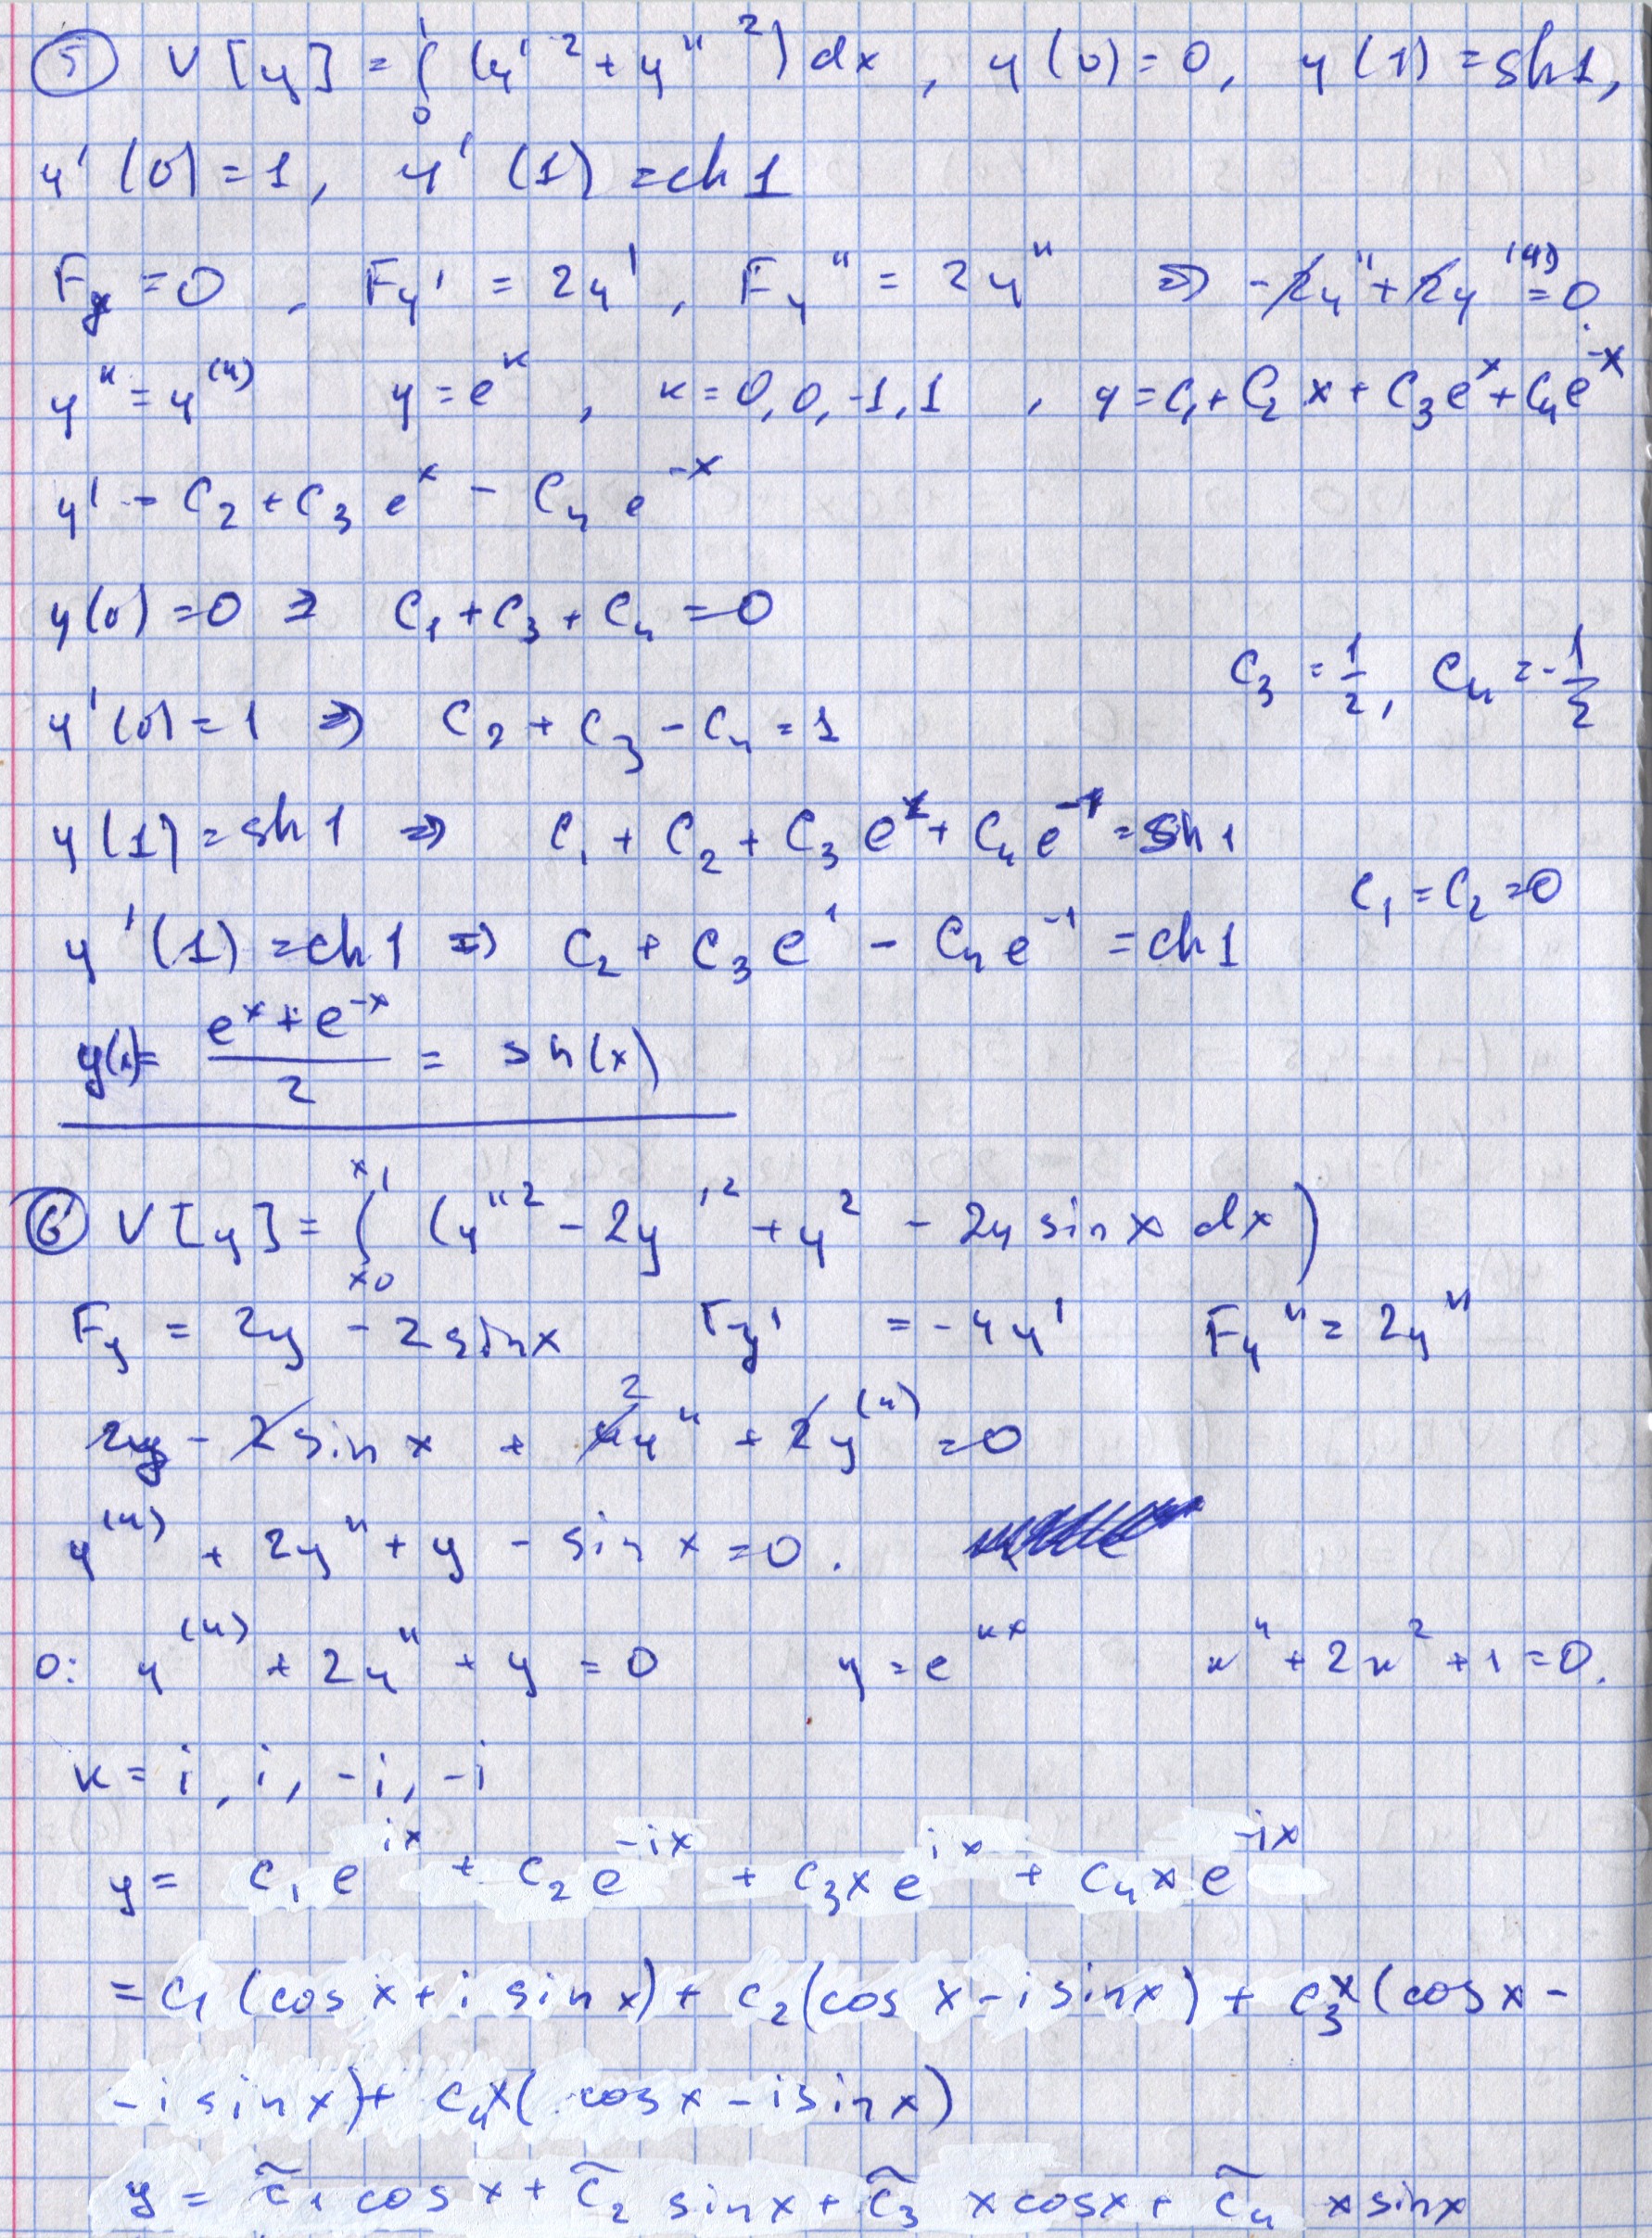 ⑤ V[y] = ∫₀¹ (y'² + y''²) dx, y(0) = 0, y(1) = sh1,
y'(0) = 1, y'(1) = ch1
Fy = 0, Fy' = 2y', Fy'' = 2y'' ⇒ -2y'' + 2y⁽⁴⁾ = 0.
y'' = y⁽⁴⁾ y = eᵏ, k = 0,0,-1,1, y = C₁ + C₂x + C₃eˣ + C₄e⁻ˣ
y' = C₂ + C₃eˣ - C₄e⁻ˣ
y(0) = 0 ⇒ C₁ + C₃ + C₄ = 0
C₃ = 1/2, C₄ = -1/2
y'(0) = 1 ⇒ C₂ + C₃ - C₄ = 1
y(1) = sh1 ⇒ C₁ + C₂ + C₃e¹ + C₄e⁻¹ = sh1
C₁ = C₂ = 0
y'(1) = ch1 ⇒ C₂ + C₃e¹ - C₄e⁻¹ = ch1
y(x) = (eˣ + e⁻ˣ)/2 = sh(x)
⑥ V[y] = ∫ₓ₀ˣ¹ (y''² - 2y'² + y² - 2y sin x dx)
Fy = 2y - 2 sin x Fy' = -4y' Fy'' = 2y''
2y - 2 sin x + 4y'' 2 + 2y⁽⁴⁾ = 0
y⁽⁴⁾ + 2y'' + y - sin x = 0.
0: y⁽⁴⁾ + 2y'' + y = 0 y = eᵏˣ k⁴ + 2k² + 1 = 0.
k = i, i, -i, -i
y = C₁eⁱˣ + C₂e⁻ⁱˣ + C₃xeⁱˣ + C₄xe⁻ⁱˣ
= C₁(cos x + i sin x) + C₂(cos x - i sin x) + C₃x(cos x -
- i sin x) + C₄x(cos x - i sin x)
y = C̃₁ cos x + C̃₂ sin x + C̃₃ x cos x + C̃₄ x sin x